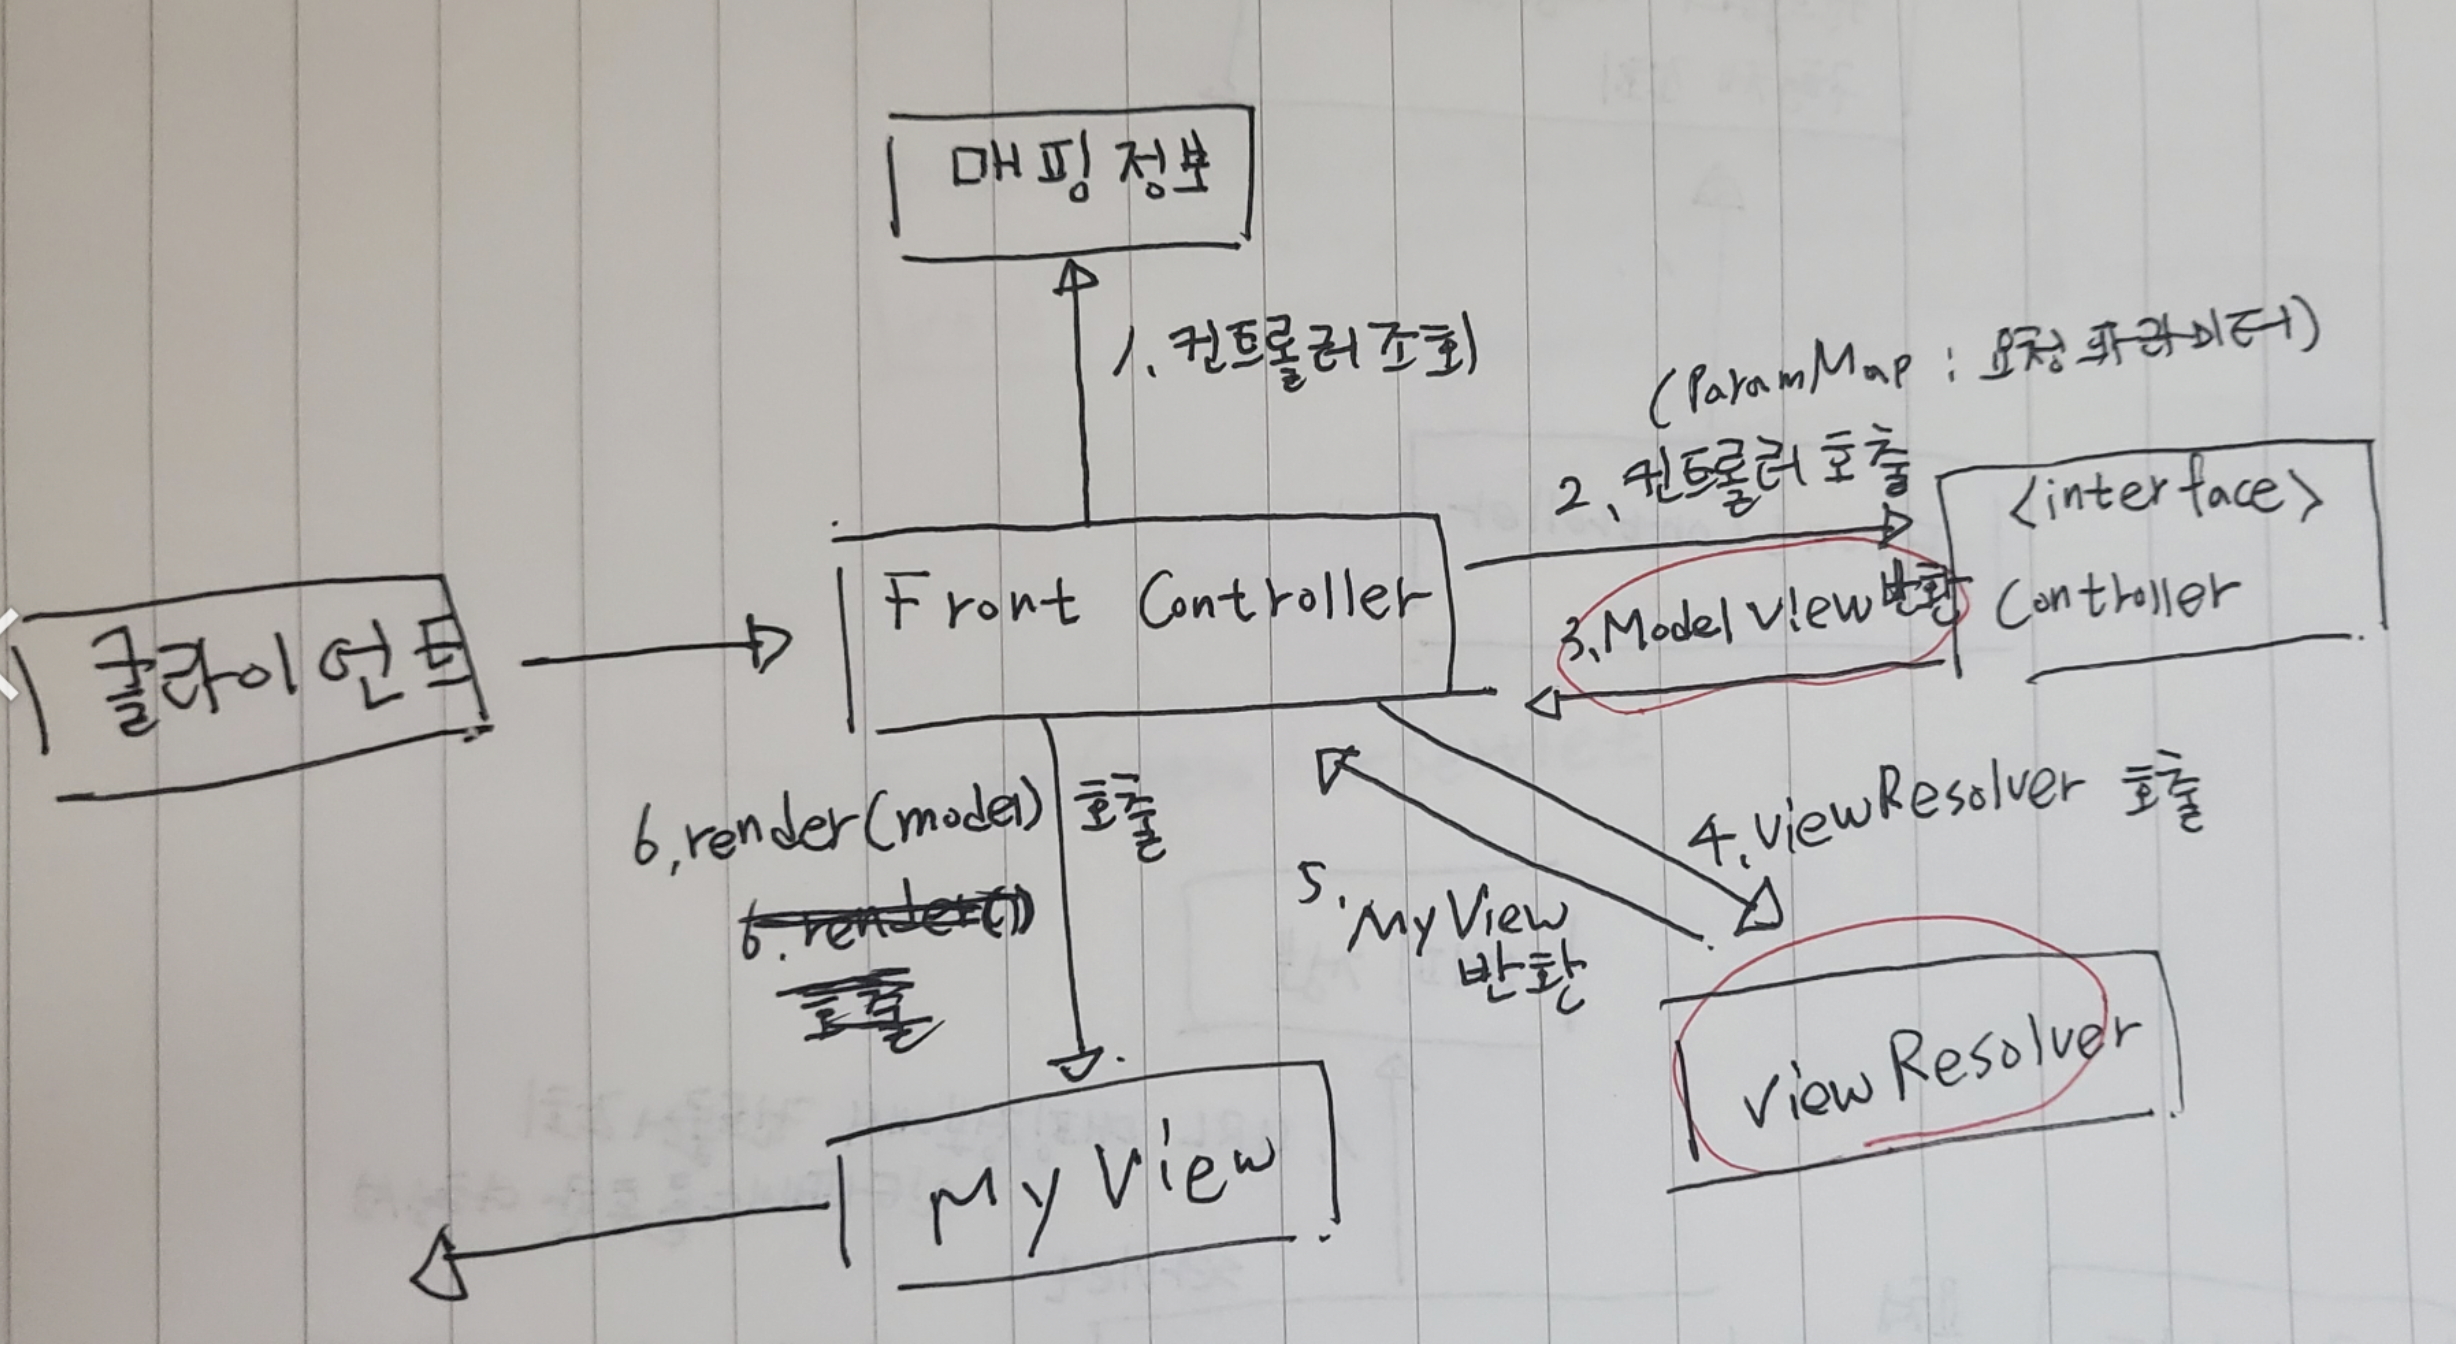 매핑정보
1. 컨트롤러 조회
(ParamMap : 요청 파라미터)
2. 컨트롤러 호출
<interface>
Controller
Front Controller
3. Model View 반환
클라이언트
6. render(model) 호출
6. render()
호출
4. viewResolver 호출
5. My View
반환
viewResolver
My View